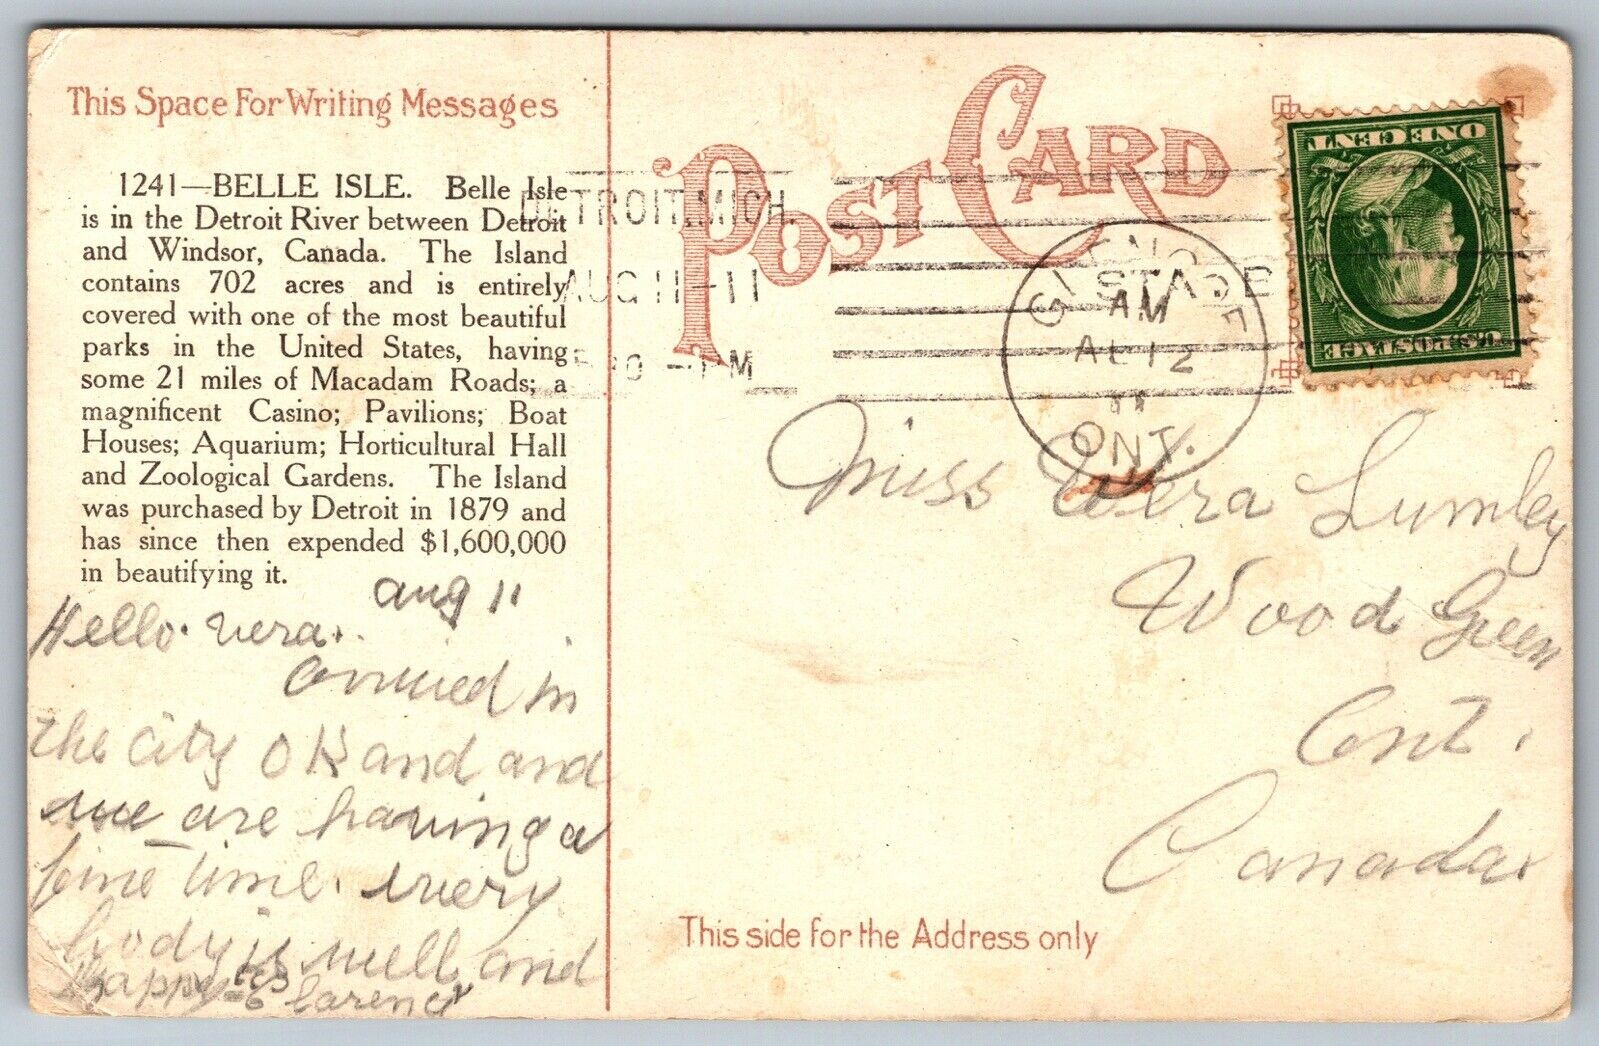 This Space For Writing Messages
POST CARD
1241—BELLE ISLE. Belle Isle
is in the Detroit River between Detroit
and Windsor, Canada. The Island
contains 702 acres and is entirely
covered with one of the most beautiful
parks in the United States, having
some 21 miles of Macadam Roads; a
magnificent Casino; Pavilions; Boat
Houses; Aquarium; Horticultural Hall
and Zoological Gardens. The Island
was purchased by Detroit in 1879 and
has since then expended $1,600,000
in beautifying it.
aug 11
Hello. vera.
arrived in
the city OK and and
we are having a
fine time. every
body is well and
happy
Clarence
DETROIT, MICH.
AUG 11-11
30-PM
GLENCOE
AM
12
11
ONT.
U.S. POSTAGE
ONE CENT
Miss Vera Lumley
Wood Green
Ont.
Canada
This side for the Address only